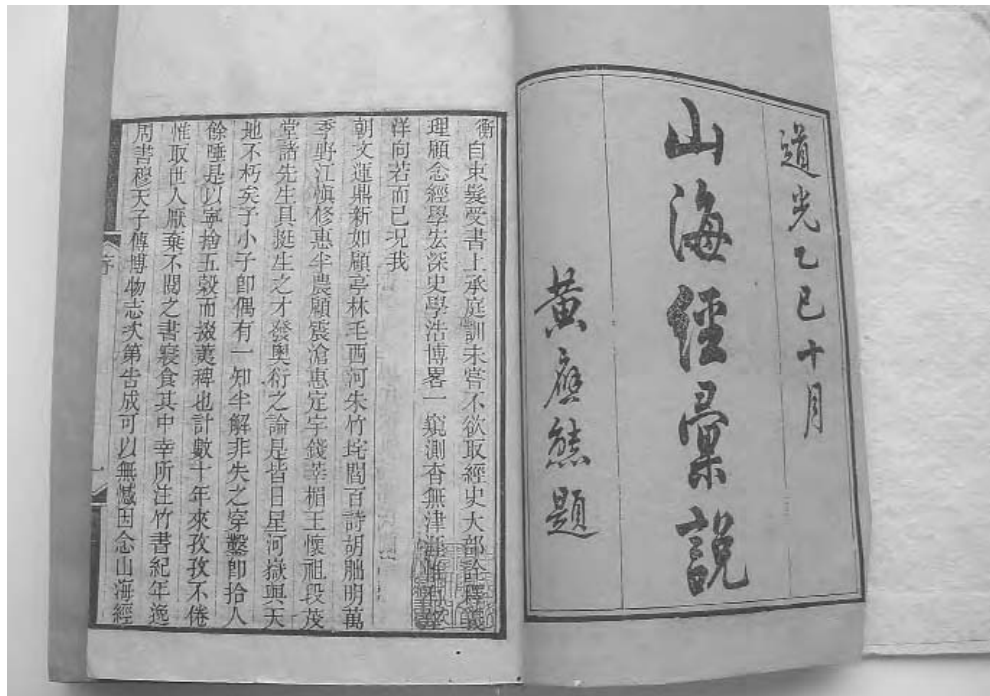 道光乙巳十月
山海經彙說
黃應熊題
衡自束髮受書上承庭訓未嘗不欲取經史大部詮釋義
理顧念經學宏深史學浩博畧一窺測杳無津涯
洋向若而已況我
朝文運鼎新如顧亭林毛西河朱竹垞閻百詩胡朏明萬
季野江慎修惠半農顧震滄惠定宇錢莘楣王懷祖段茂
堂諸先生具挺生之才發輿衍之論是皆日星河嶽與天
地不朽矣予小子卽偶有一知半解非失之穿鑿卽拾人
餘唾是以寧捨五穀而掇荑稗也計數十年來孜孜不倦
惟取世人厭棄不閱之書寢食其中幸所注竹書紀年逸
周書穆天子傳博物志次第告成可以無憾因念山海經
序
一